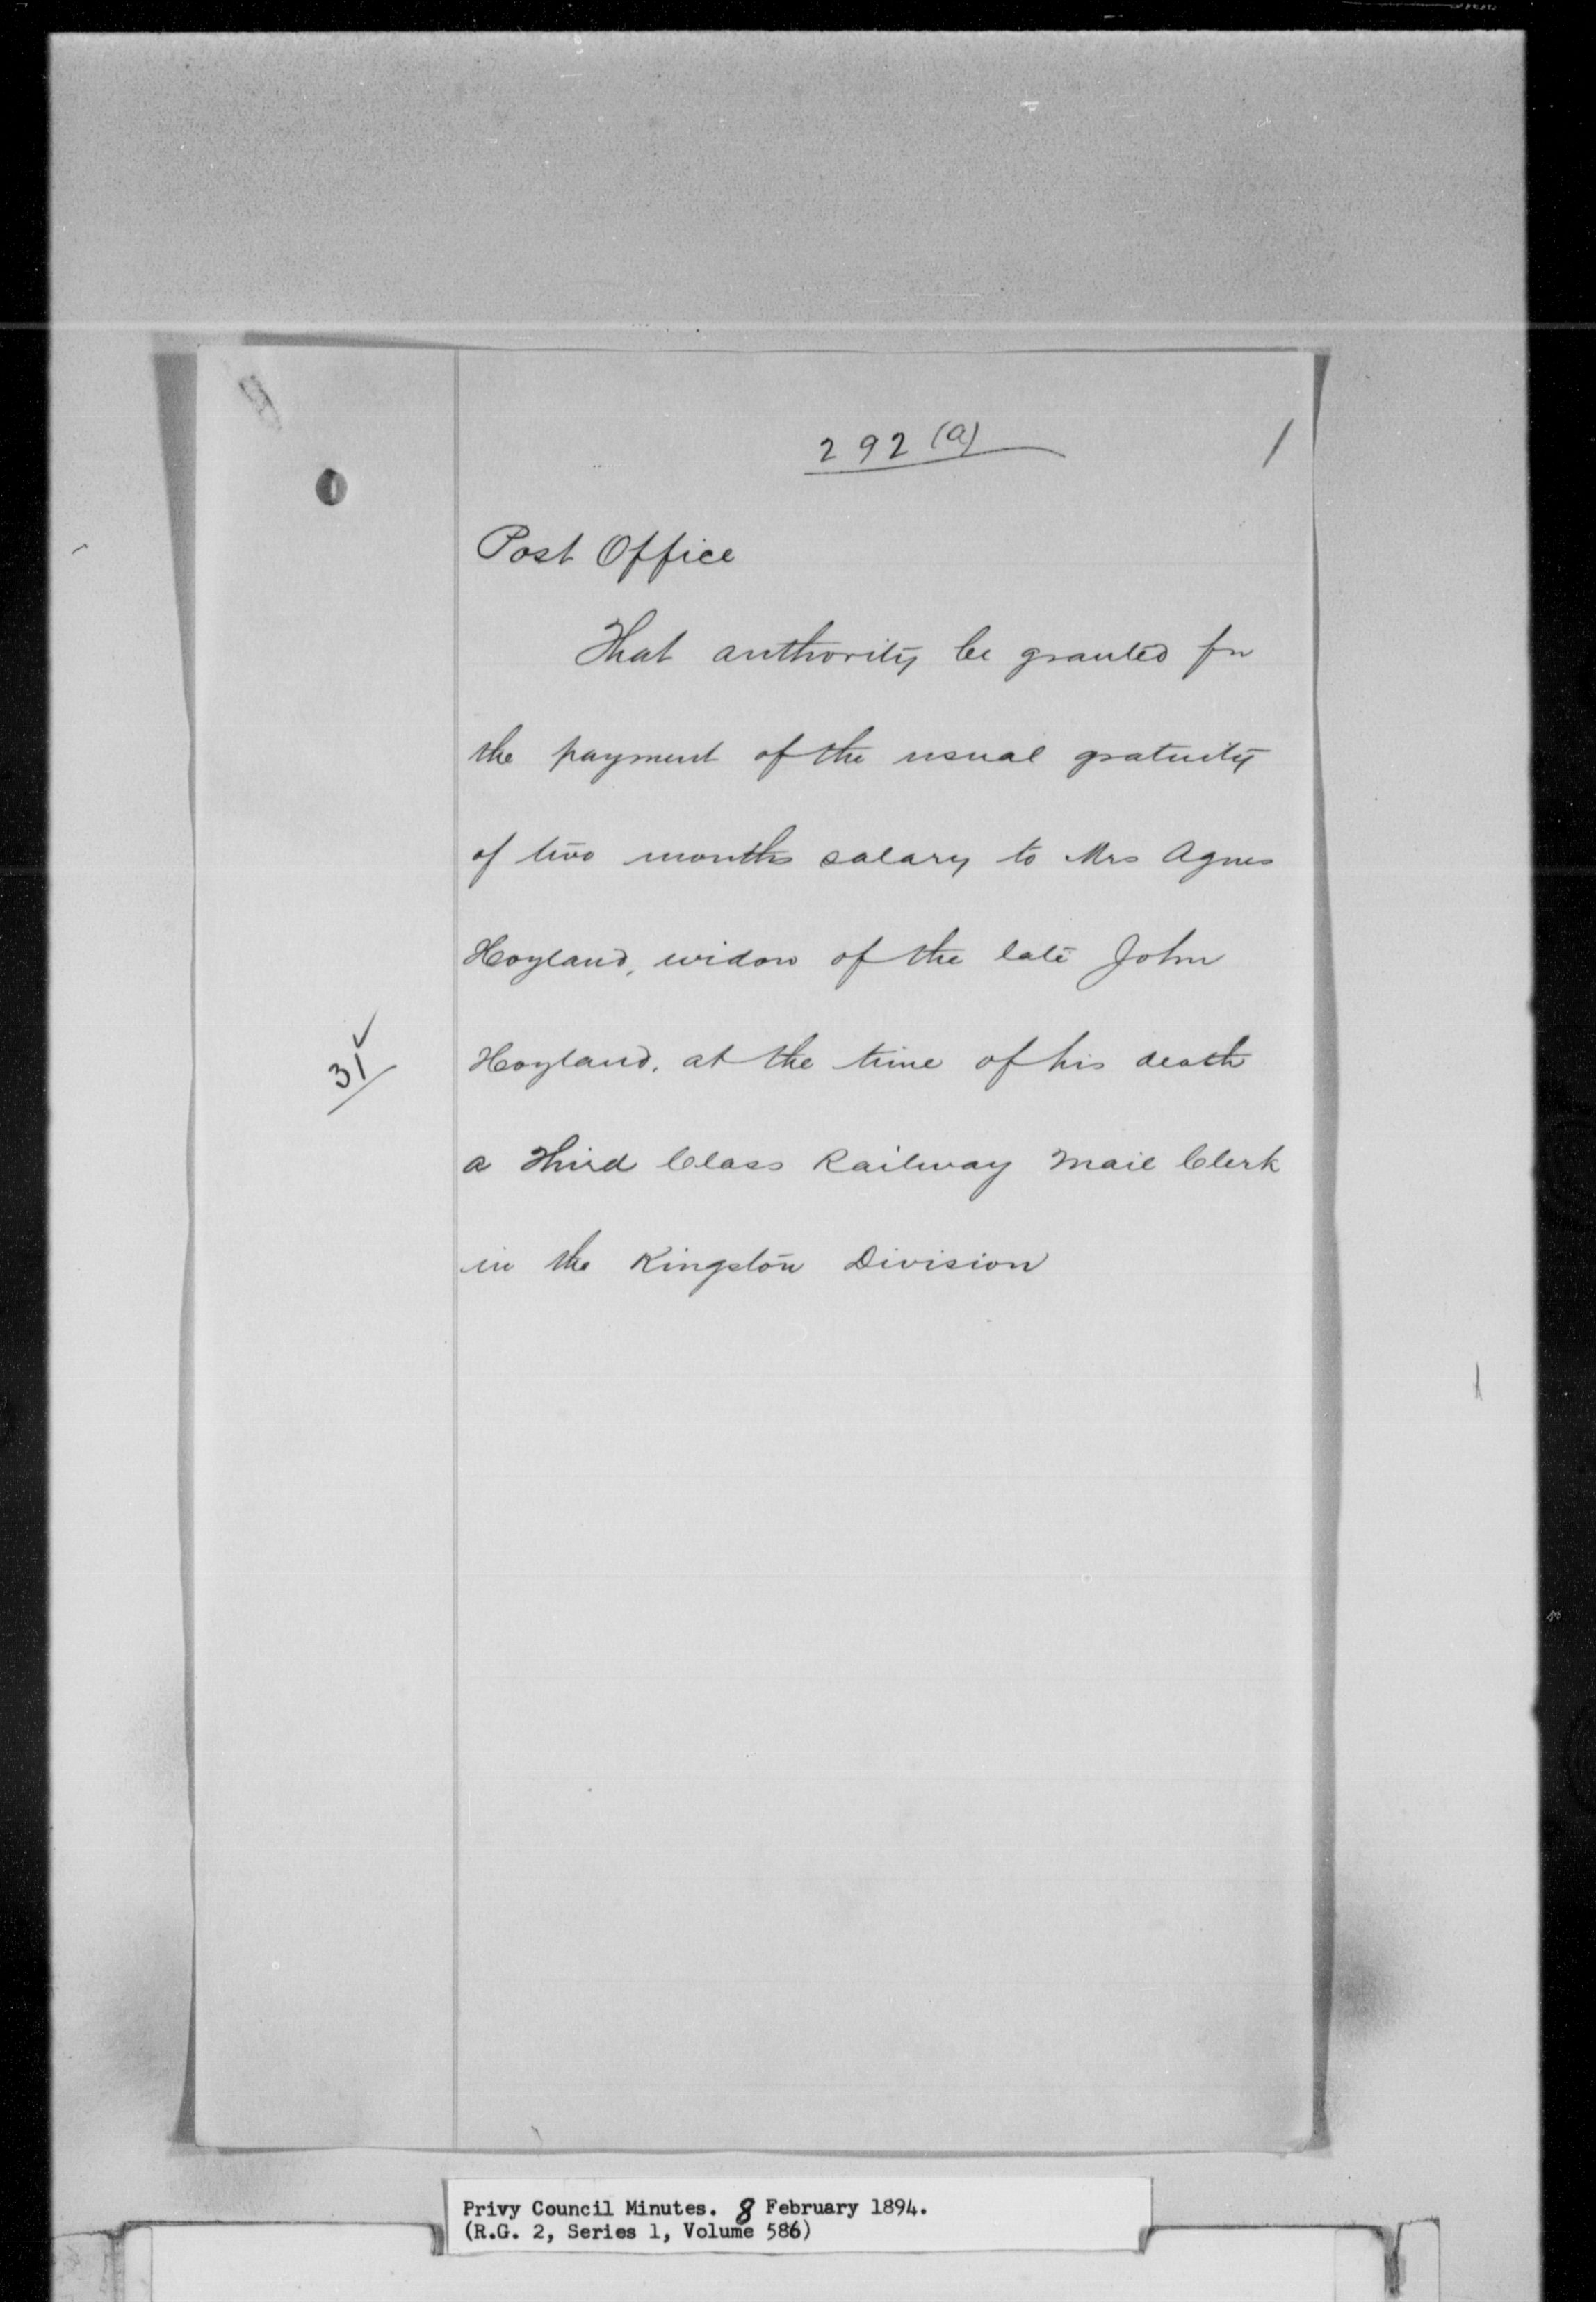 292 (a)
1
Post Office
That authority be granted for
the payment of the usual gratuity
of two months salary to Mrs Agnes
Hoyland, widow of the late John
Hoyland, at the time of his death
31
a Third Class Railway Mail Clerk
in the Kingston Division
Privy Council Minutes. 8 February 1894.
(R.G. 2, Series 1, Volume 586)